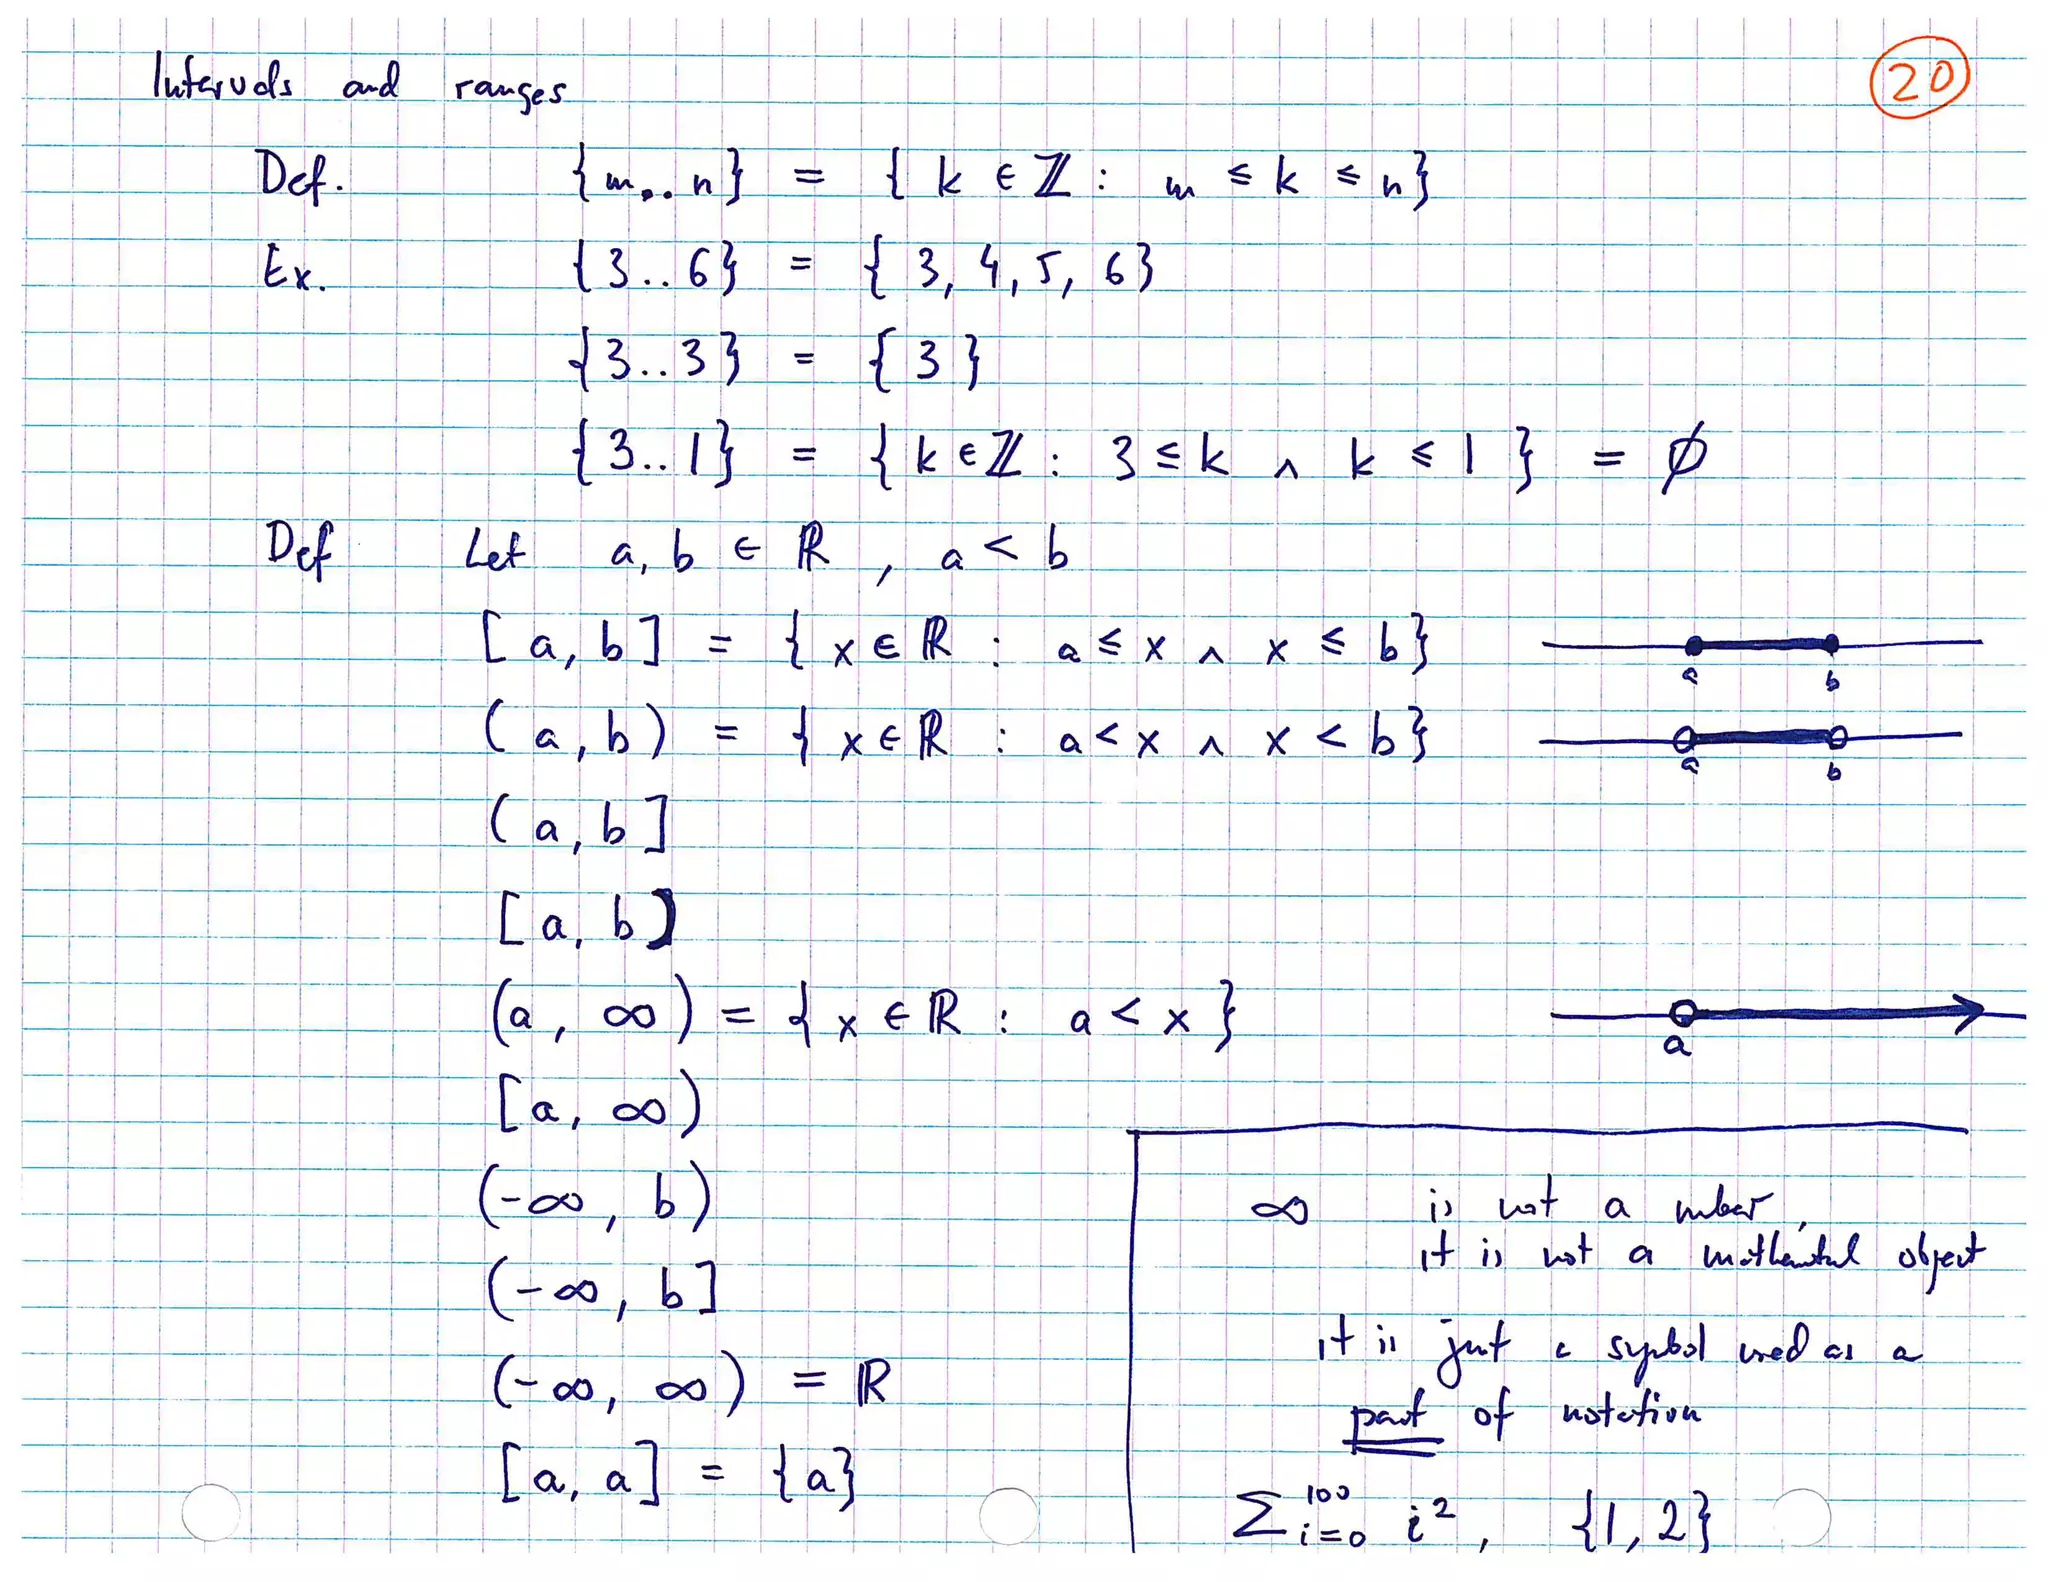 Intervals and ranges
20
Def. {m..n} = {k ∈ ℤ : m ≤ k ≤ n}
Ex. {3..6} = {3, 4, 5, 6}
{3..3} = {3}
{3..1} = {k ∈ ℤ : 3 ≤ k ∧ k ≤ 1} = ∅
Def Let a, b ∈ ℝ, a < b
[a, b] = {x ∈ ℝ : a ≤ x ∧ x ≤ b}
a b
(a, b) = {x ∈ ℝ : a < x ∧ x < b}
a b
(a, b]
[a, b)
(a, ∞) = {x ∈ ℝ : a < x}
a
[a, ∞)
(-∞, b)
(-∞, b]
(-∞, ∞) = ℝ
[a, a] = {a}
∞ is not a number,
it is not a mathematical object
it is just a symbol used as a
part of notation
∑_{i=0}^{100} i², {1, 2}